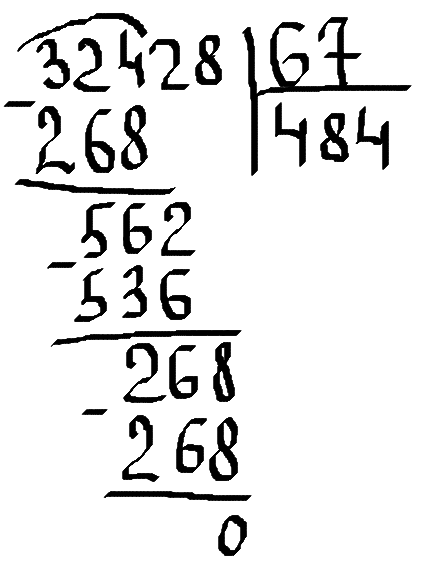 32428 67
- 268 484
562
- 536
268
- 268
0